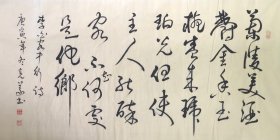 蘭陵美酒
鬱金香玉
椀盛來琥
珀光但使
主人能醉
客不知何處
是他鄉
李白客中行詩
庚寅年冬書